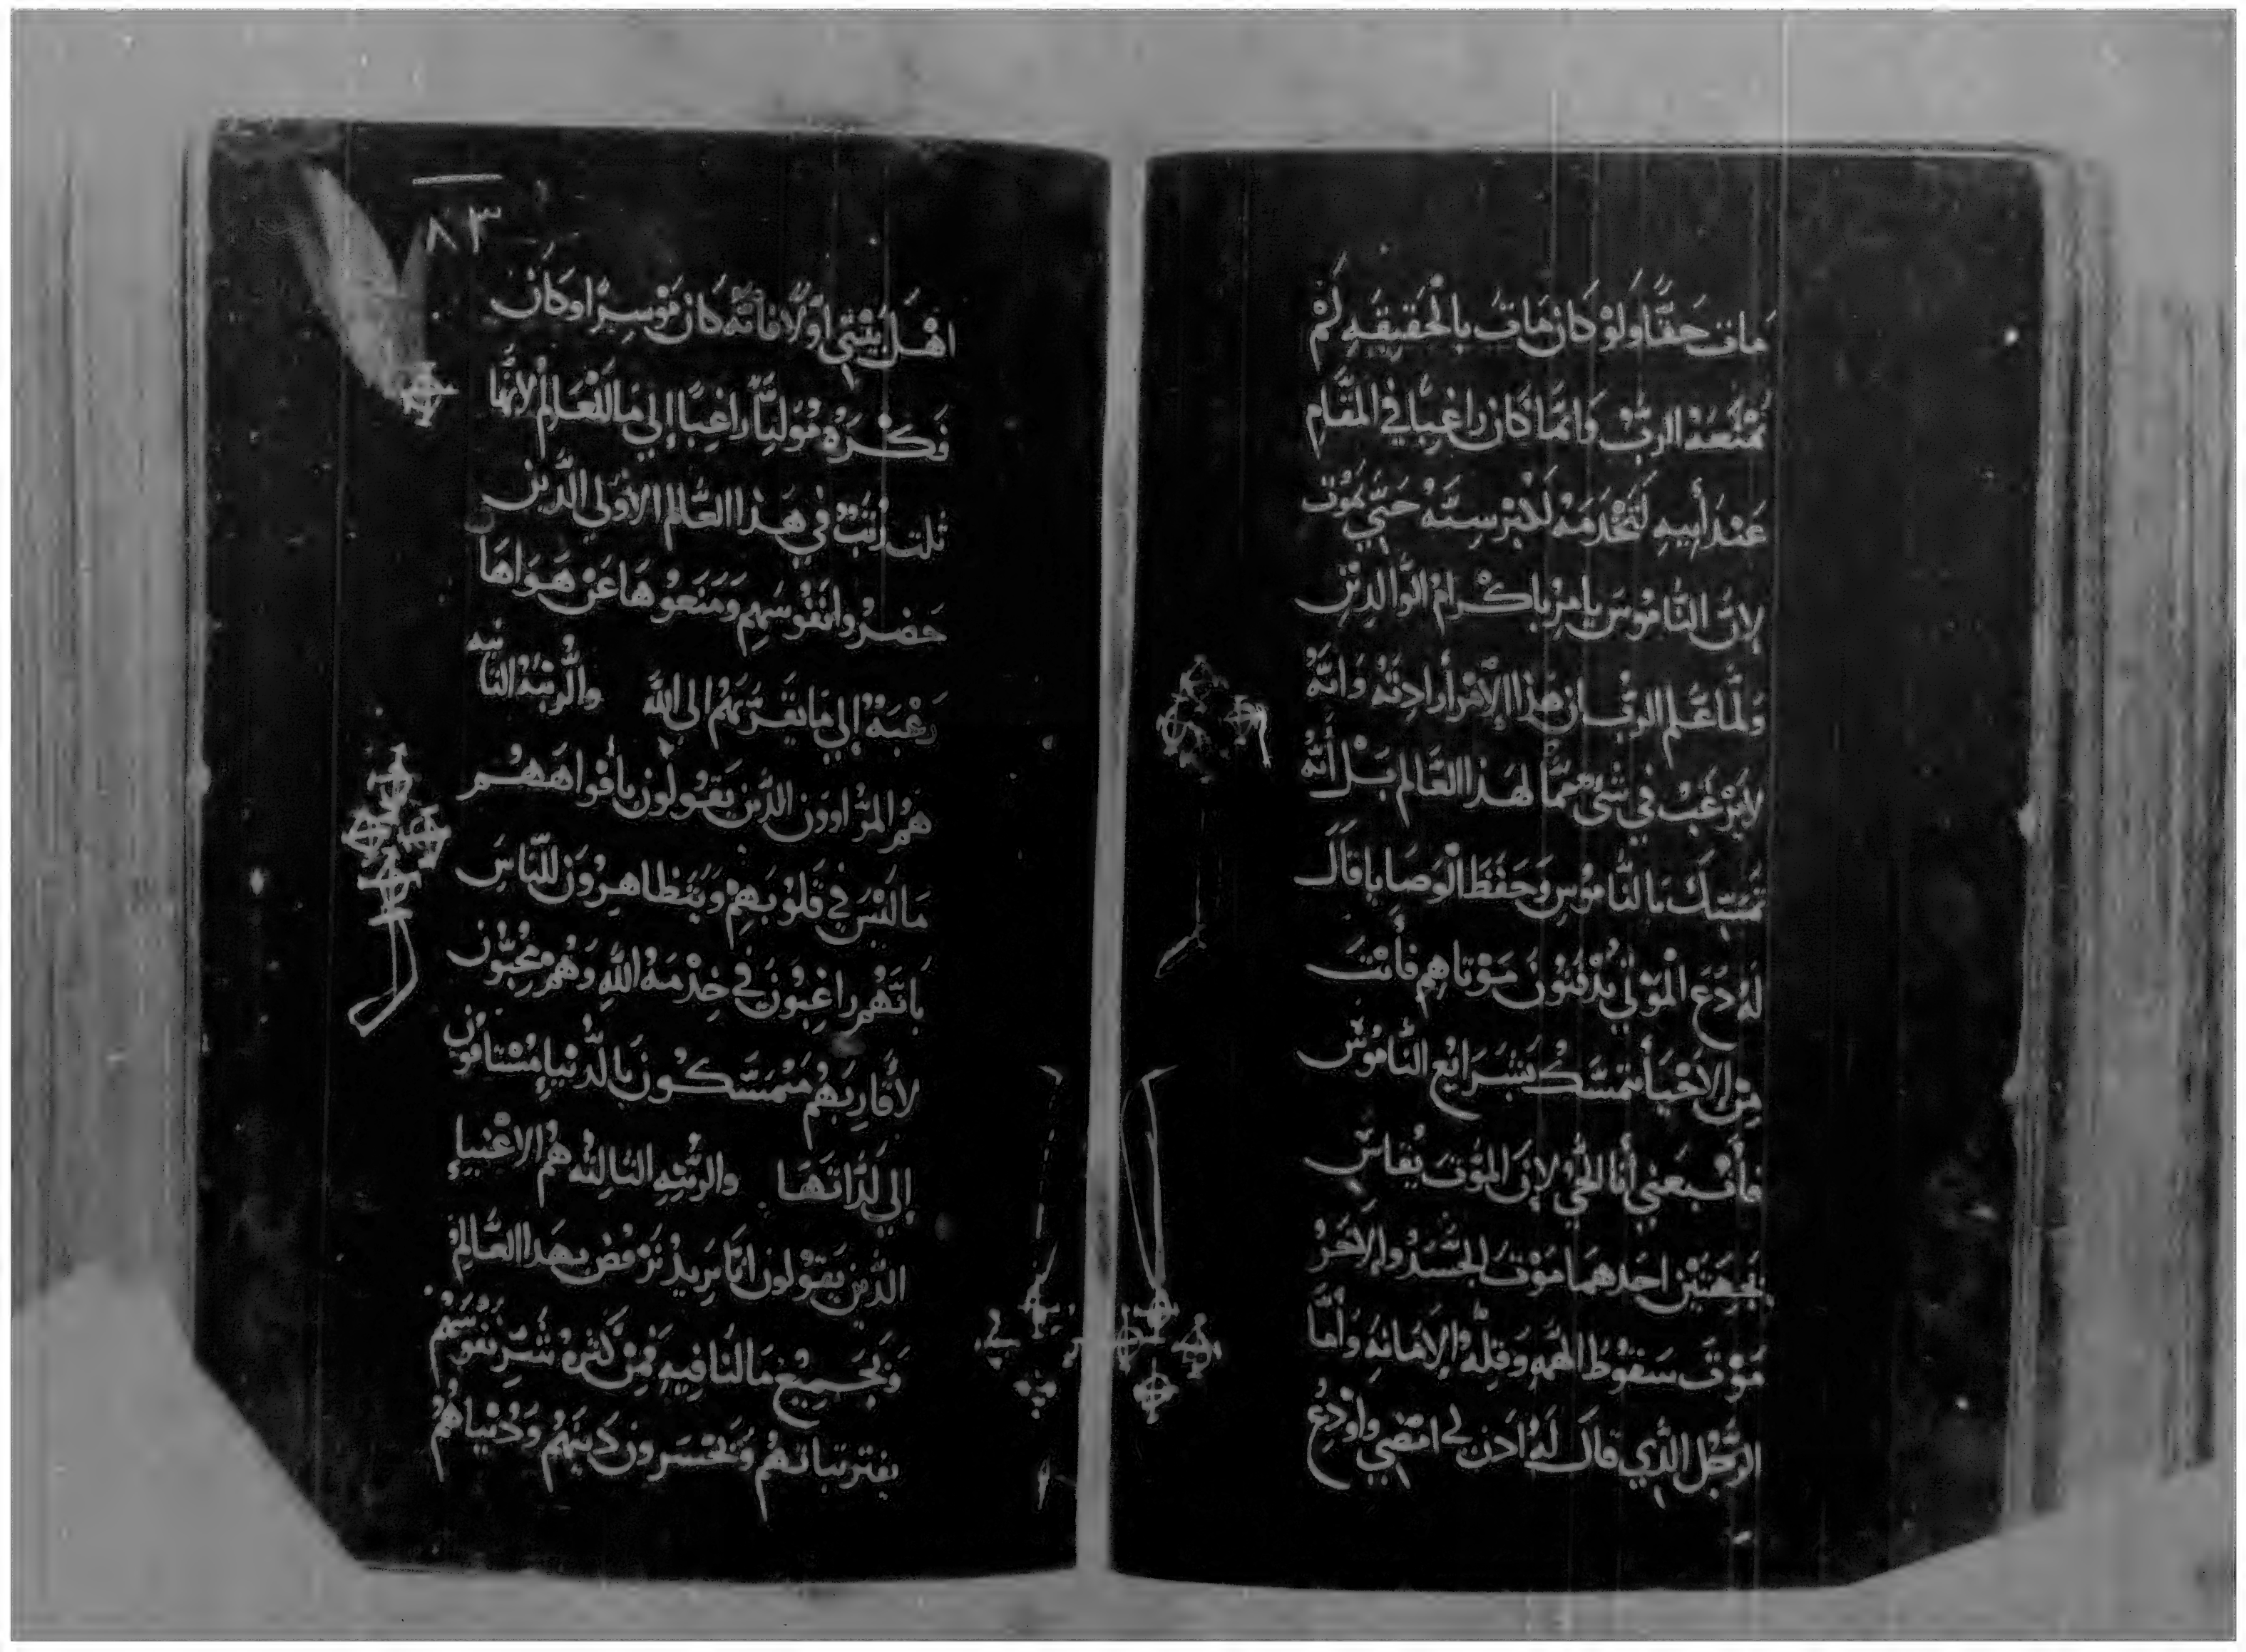 مات حَقًّا وَلَوْ كان مَات بالْحَقيقَهِ لَمْ
يَمْنَعهُ الربُّ وَانمَّا كَان راغِبًا في المقَامِ
عَندَ أَبيهِ لَتَخْدَمَهُ لَكِبْر سِنَّهُ حَتَّي يَمُوْت
لاِنَّ النَّامُوْسَ يامِرُ باكْرامُ الوَّالدِيْن
وَلَّما عَلم الربُّ ان هَذا الاَمْر أرادتَهُ وَانَّهُ
لاَيَرْغَبُ في شيٍ ممَّا لهَذا العَّالم بَلْ أنَّهُ
تمَسّك بالنَّاموُسِ وَحَفظَ الْوَصَايا قاَلَ
لَهُ دَع المَوْتَي يُدْفنُوْنَ مَوْتاهِم فَأنْتَ
مِنْ الاَحْيَأ تَمَسَّكْ بَشَرايْع النَّامُوْس
فأتْبعَني أنا الحَيُّ لاِنَ المَوْتَ يُقاسِ
بجهَتَيْن احَدهمَا مَوْت الجسَّدُ والاَخَرُ
مَوْتَ سَقوُطَ الهمَهِ وَقلِّهُ الاَمانَهِ وَأمَّا
الرَّجُل الذَّي قاَلَ لَهُ ادَن لي امْضي وَاوْدِعْ
٨٣
اهْلَ بَيْتي اوَّلاً فأنَّه كَان مَوْسِرًا وكَان
فَكْرَهُ مُوَليًّا راغِبًا إلي مَا للْعَالمُ لاَنَّها
ثلت رُتَبُ في هَذا العَّالم الاوَلي الذَّين
حَضرُوا نفَوْسَهِم وَمَنَعوُهَا عَنْ هَوَاهَا
رَغْبَهُ إلي مَا يقَرَّبَهمُ الى اللهِ والرُّتبَهُ الثَّانيَه
هُم المرَّاوون الذَّين يَقوُلوُن بأفوَاهَهُم
مَا لَيْسَ في قَلوْبَهِمْ وَيَتظاهِرُوَن للنَّاسَ
بَانَّهُم راغِبوُنَ في خِدْمَهُ اللهِ وَهُم محُبُّون
لاَقَارِبَهُم مَتْمَسَّكوُن بَالدَّنْيا مُسْتامُون
إلي لَذَّاتهَا والرتُبَهِ الثالِثه هُم الاغْنيا
الذَّين يَقوُلون انَّا نرِيدُ نَرْفُض بهَدا العَّالمْ
وَبجَمِيْعْ مَا لنَا فيهِ فمِنْ كَثرهُ شُر نفوُسَهُم
بفتر نياتهُمْ وَيخْسَرون دَيْنَهُم وَدُنْياهُمْ